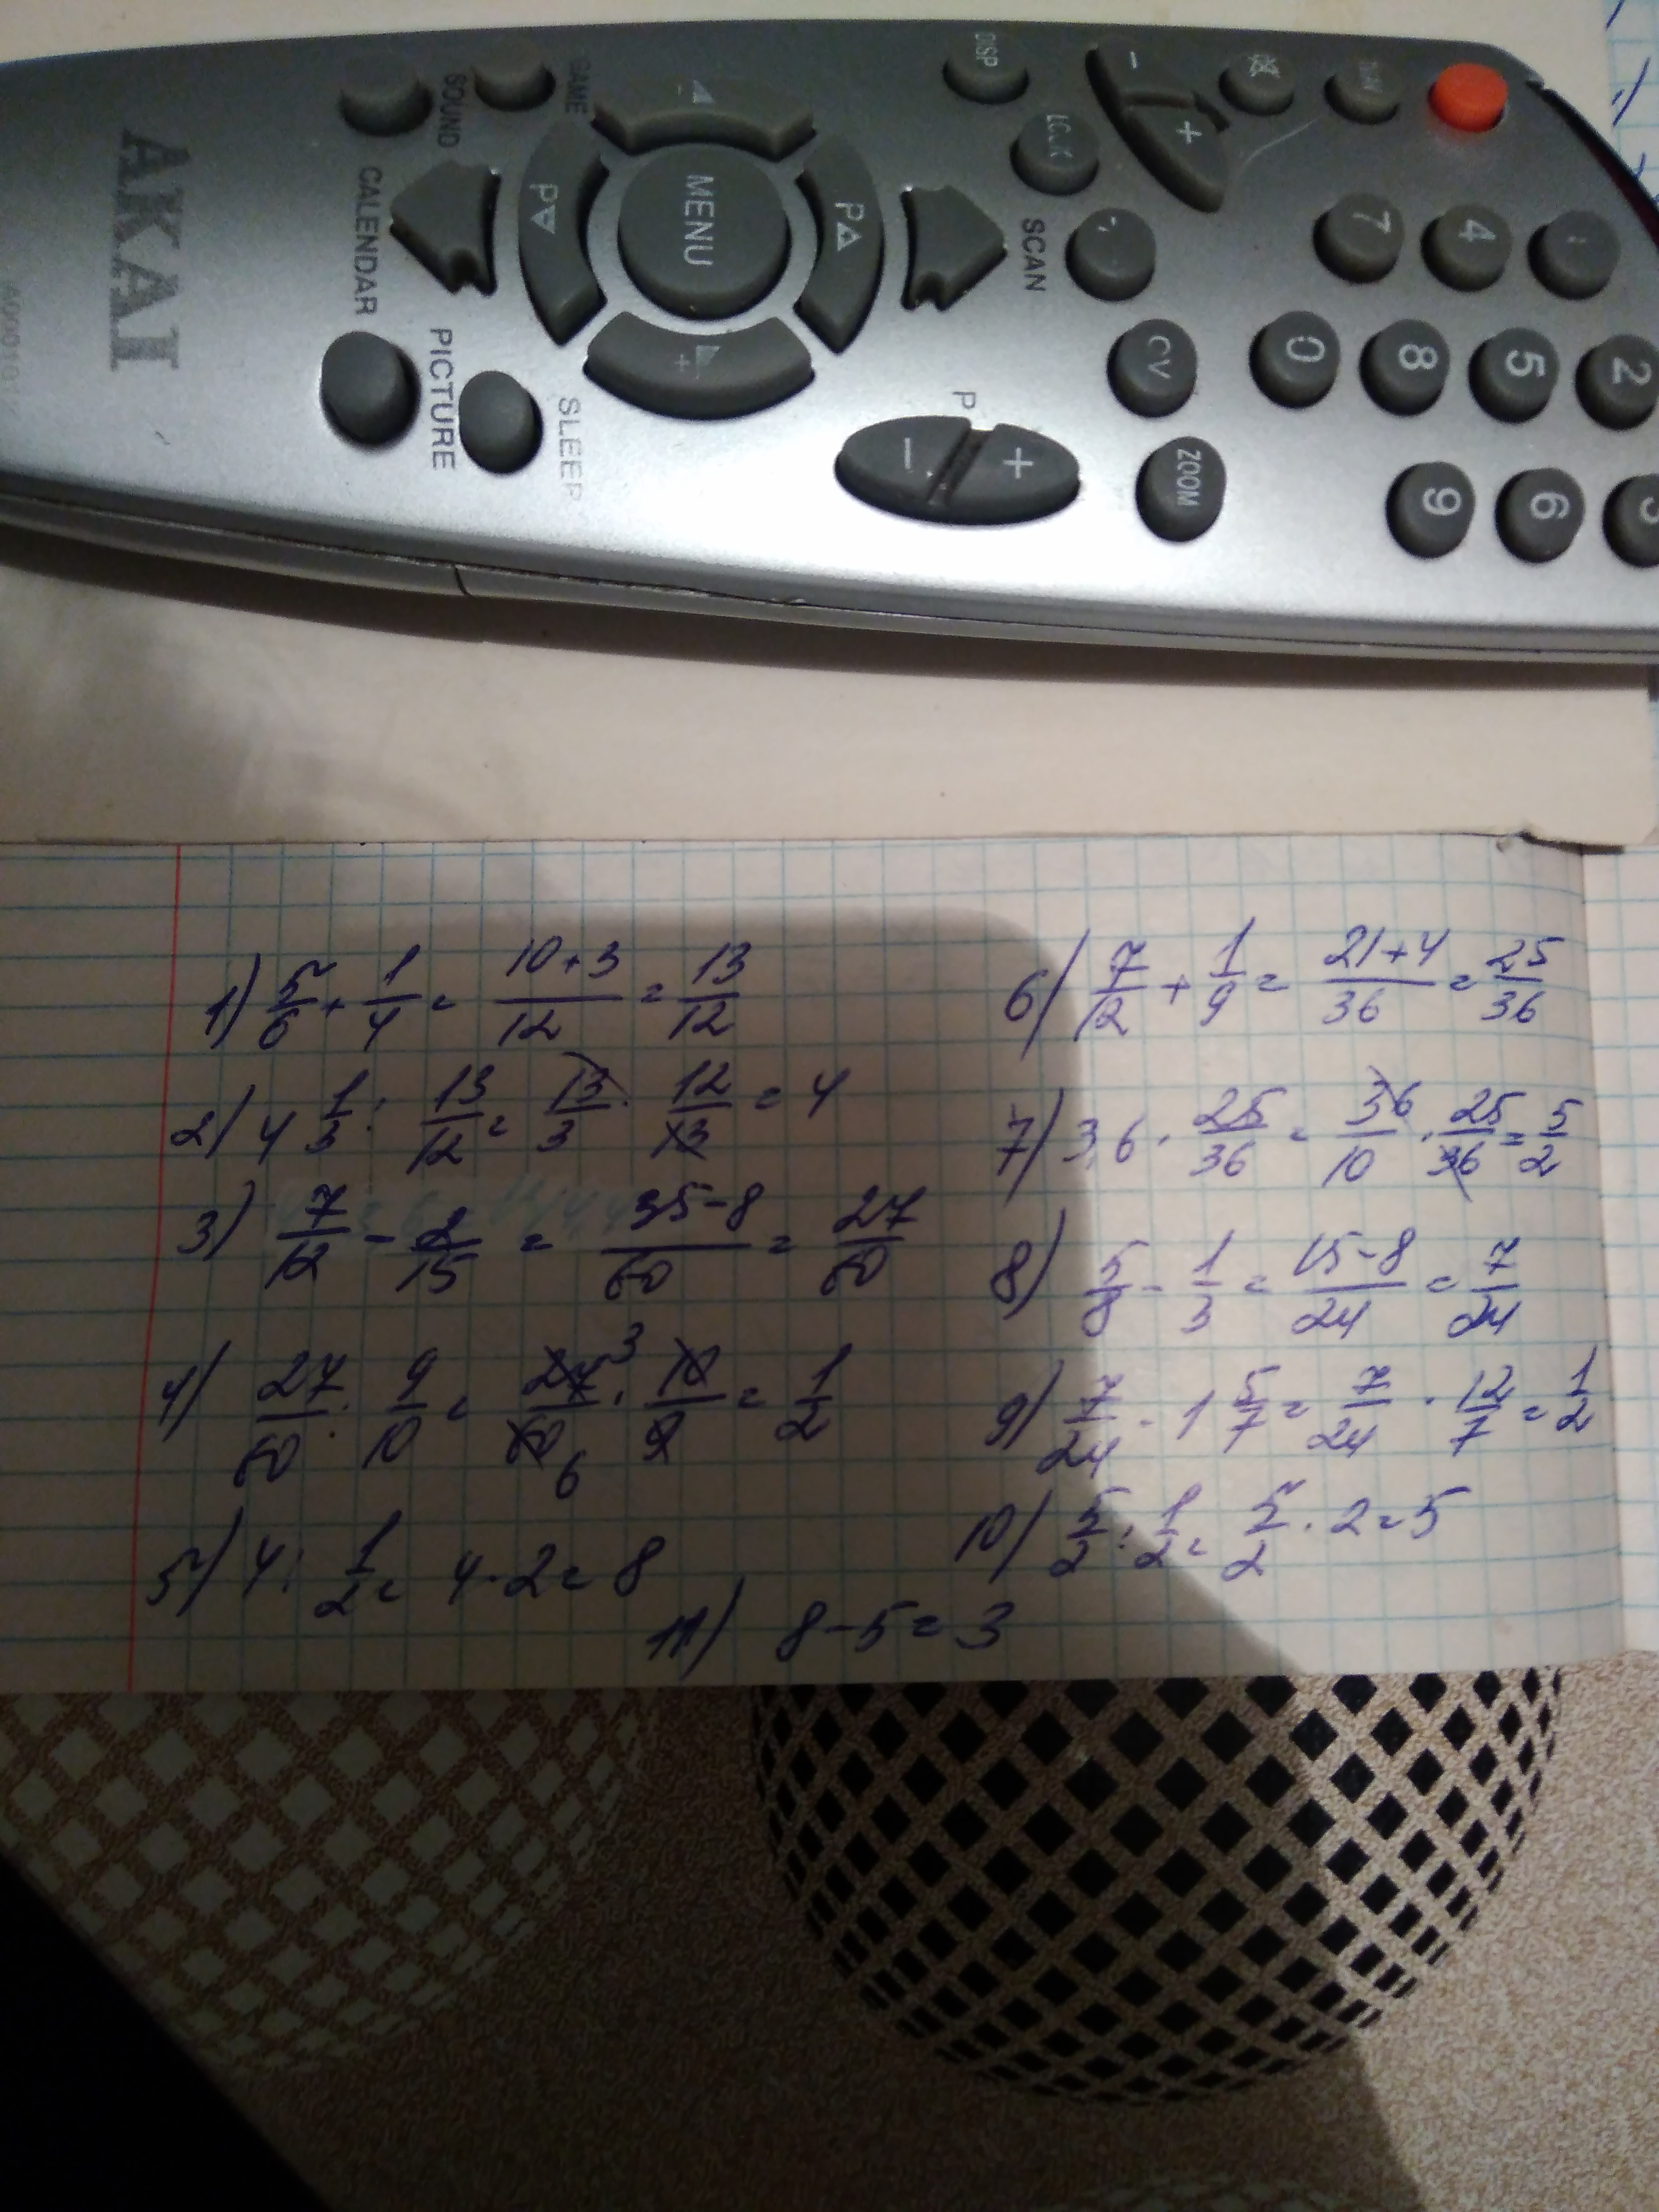 DISP
GAME
SOUND
LOCK
MENU
P▽
P△
SCAN
AKAI
CALENDAR
PICTURE
SLEEP
P
- +
- +
ZOOM
7 4
0 8 5 2
9 6
1) 5/6 + 1/4 = (10+3)/12 = 13/12
2) 4 1/3 : 13/12 = 13/3 · 12/13 = 4
3) 7/12 - 2/15 = (35-8)/60 = 27/60
4) 27/60 : 9/10 = 27/60 3 6 · 10/9 = 1/2
5) 4 : 1/2 = 4 · 2 = 8
6) 7/12 + 1/9 = (21+4)/36 = 25/36
7) 3,6 · 25/36 = 36/10 · 25/36 = 5/2
8) 5/8 - 1/3 = (15-8)/24 = 7/24
9) 7/24 · 1 5/7 = 7/24 · 12/7 = 1/2
10) 5/2 : 1/2 = 5/2 · 2 = 5
11) 8-5=3